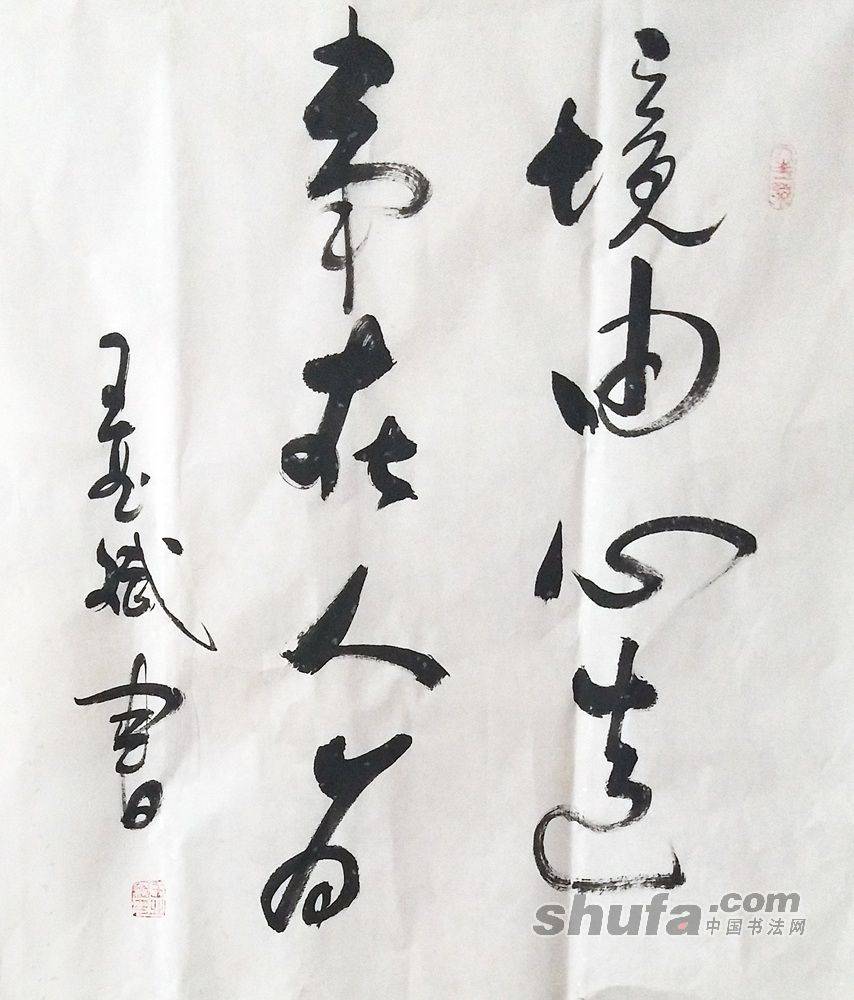 境由心造
事在人为
王 書
shufa.com
中国书法网